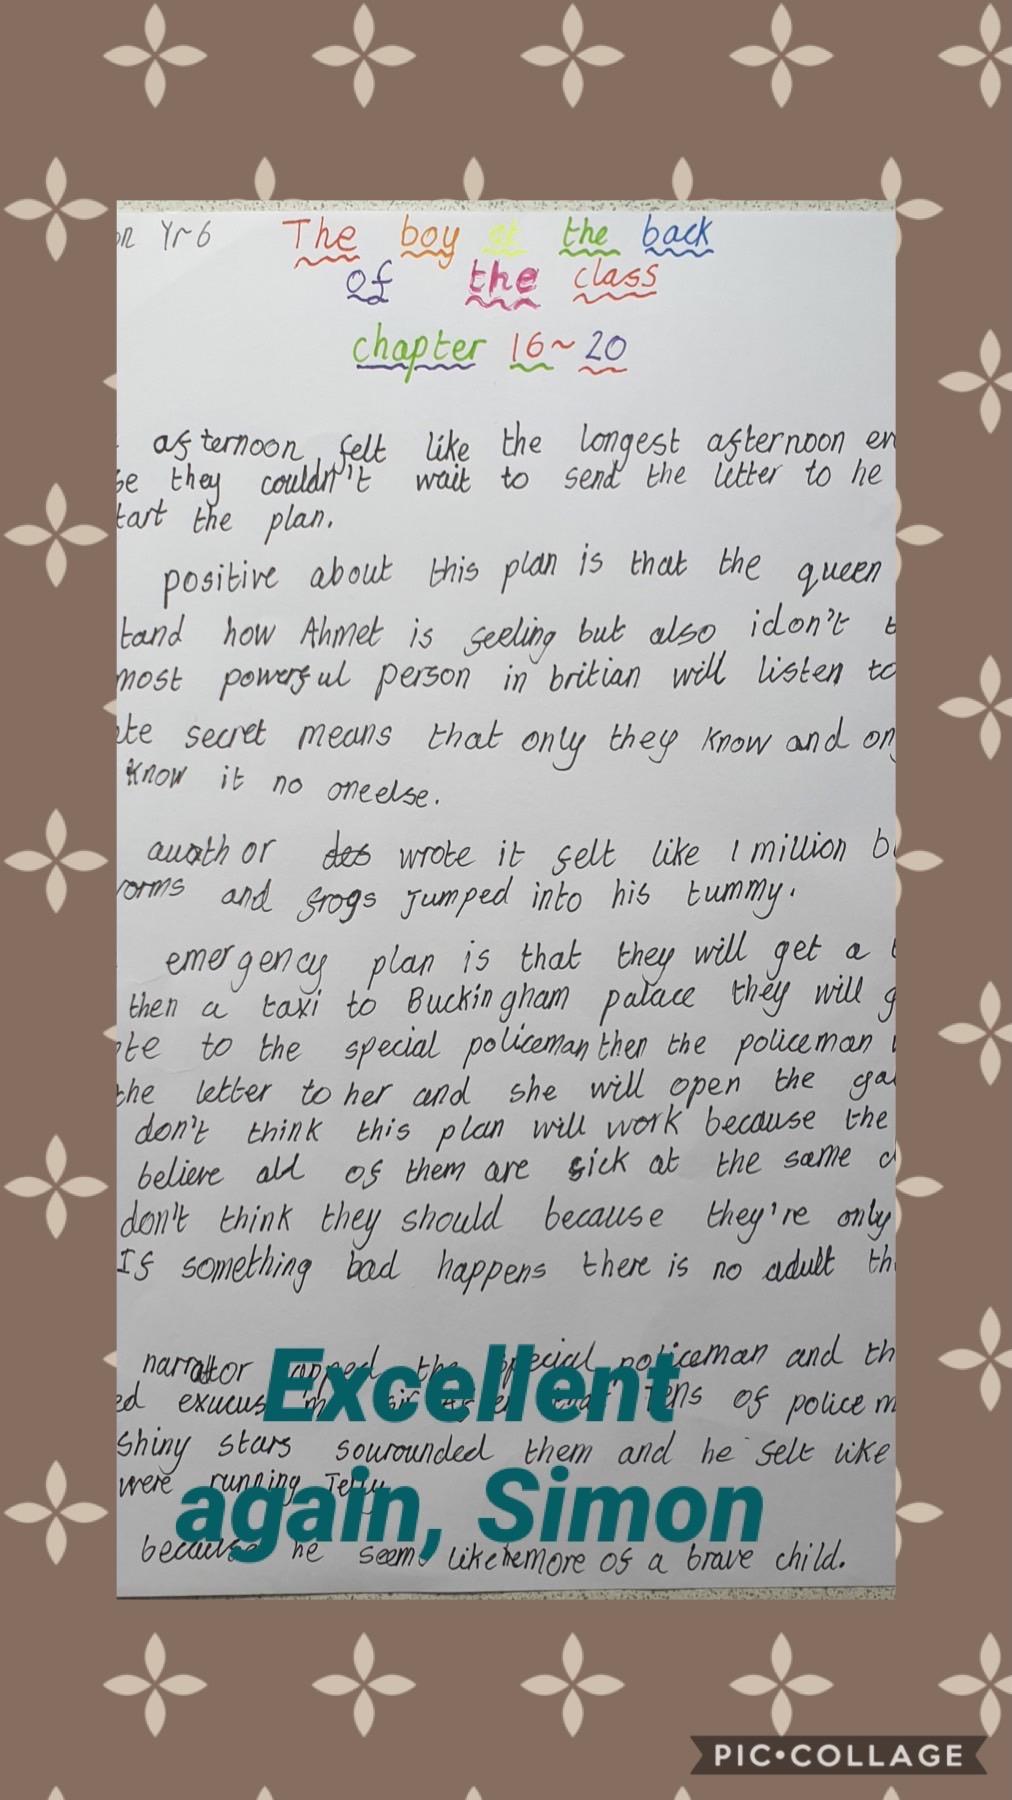 on Yr 6
The boy at the back
of the class
chapter 16~20
afternoon felt like the longest afternoon
they couldn't wait to send the letter to he
the plan.
positive about this plan is that the queen
how Ahmet is feeling but also idon't
most powerful person in britian will listen to
secret means that only they know and
know it no oneelse.
auather wrote it felt like 1 million
and frogs Jumped into his tummy.
emergency plan is that they will get a
then a taxi to Buckingham palace they will
to the special policeman then the policeman
the letter to her and she will open the
don't think this plan will work because the
believe all of them are sick at the same
don't think they should because they're only
If something bad happens there is no adult
narrator the special policeman and
of police
shiny stars sourounded them and he felt like
were running Jelly
because he like more of a brave child.
Excellent
again, Simon
PIC•COLLAGE